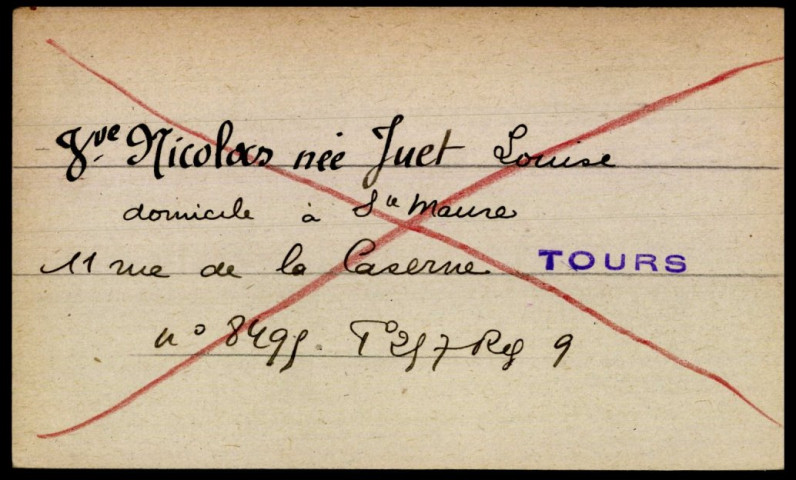 Vve Nicolas née Juet Louise
domicile à Ste Maure
11 rue de la Caserne TOURS
n° 8495. F° 257 Reg 9